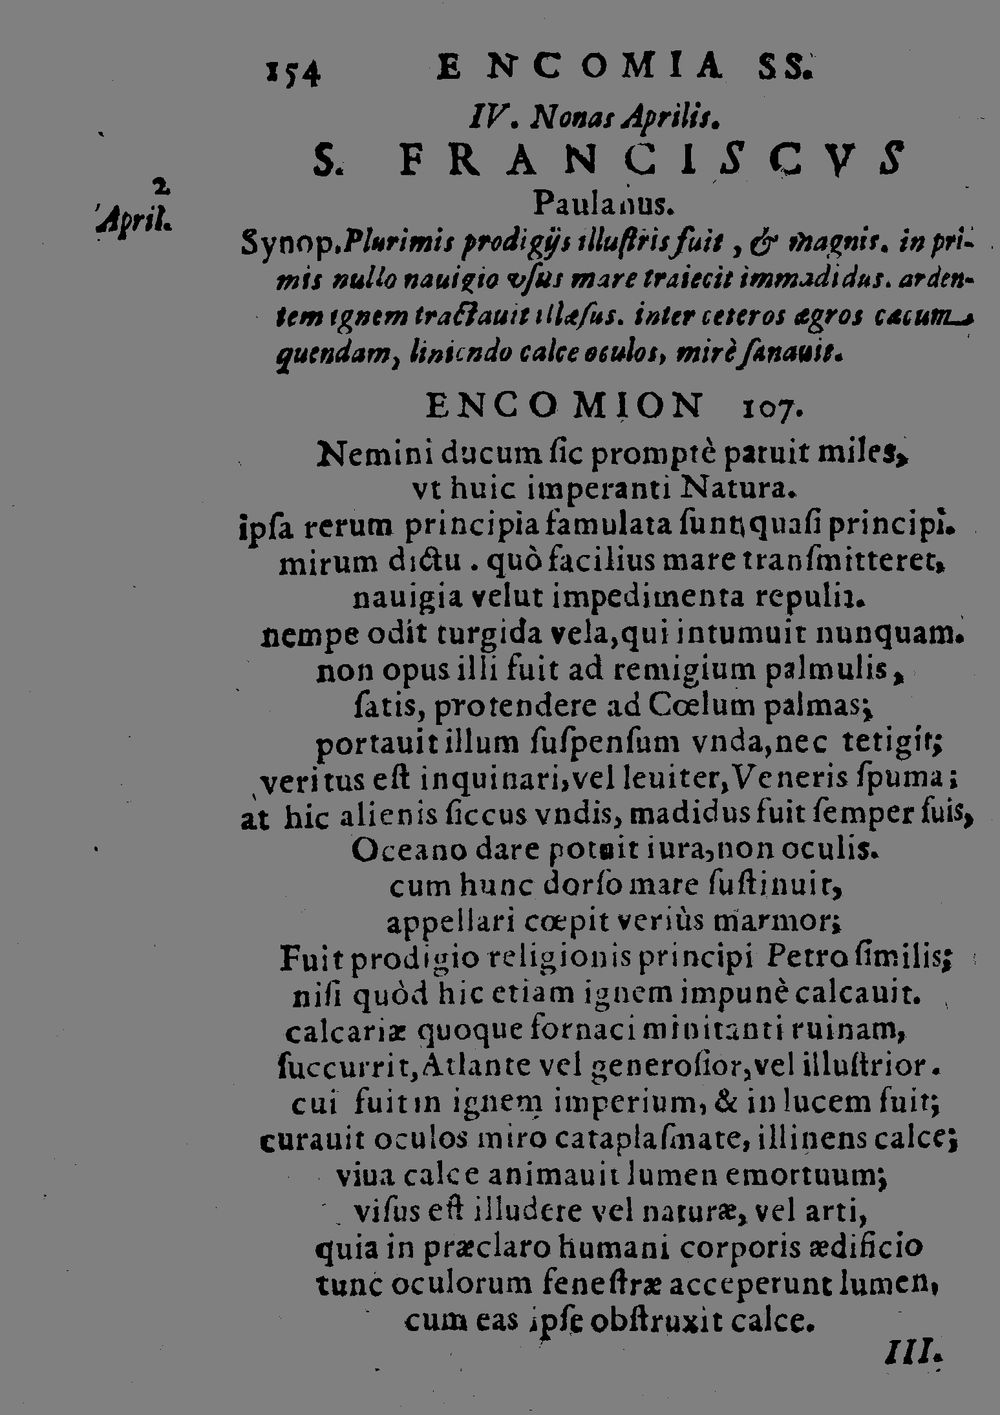 154 ENCOMIA SS.
IV. Nonas Aprilis.
S. FRANCISCVS
2
April.
Paulanus.
Synop. Plurimis prodigijs illuſtris fuit, & magnis. in pri-
mis nullo nauigio vſus mare traiecit immadidus. arden-
tem ignem tractauit illæſus. inter ceteros ægros cæcum
quendam, liniendo calce oculos, mirè ſanauit.
ENCOMION 107.
Nemini ducum ſic promptè patuit miles,
vt huic imperanti Natura.
ipſa rerum principia famulata ſunt, quaſi principi.
mirum dictu. quò facilius mare tranſmitteret,
nauigia velut impedimenta repulit.
nempe odit turgida vela, qui intumuit nunquam.
non opus illi fuit ad remigium palmulis,
ſatis, protendere ad Cœlum palmas;
portauit illum ſuſpenſum vnda, nec tetigit;
veritus eſt inquinari, vel leuiter, Veneris ſpuma;
at hic alienis ſiccus vndis, madidus fuit ſemper ſuis,
Oceano dare potuit iura, non oculis.
cum hunc dorſo mare ſuſtinuit,
appellari cœpit veriùs marmor;
Fuit prodigio religionis principi Petro ſimilis;
niſi quòd hic etiam ignem impunè calcauit.
calcariæ quoque fornaci minitanti ruinam,
ſuccurrit, Atlante vel generoſior, vel illuſtrior.
cui fuit in ignem imperium, & in lucem fuit;
curauit oculos miro cataplaſmate, illinens calce;
viua calce animauit lumen emortuum;
viſus eſt illudere vel naturæ, vel arti,
quia in præclaro humani corporis ædificio
tunc oculorum feneſtræ acceperunt lumen,
cum eas ipſe obſtruxit calce.
III.